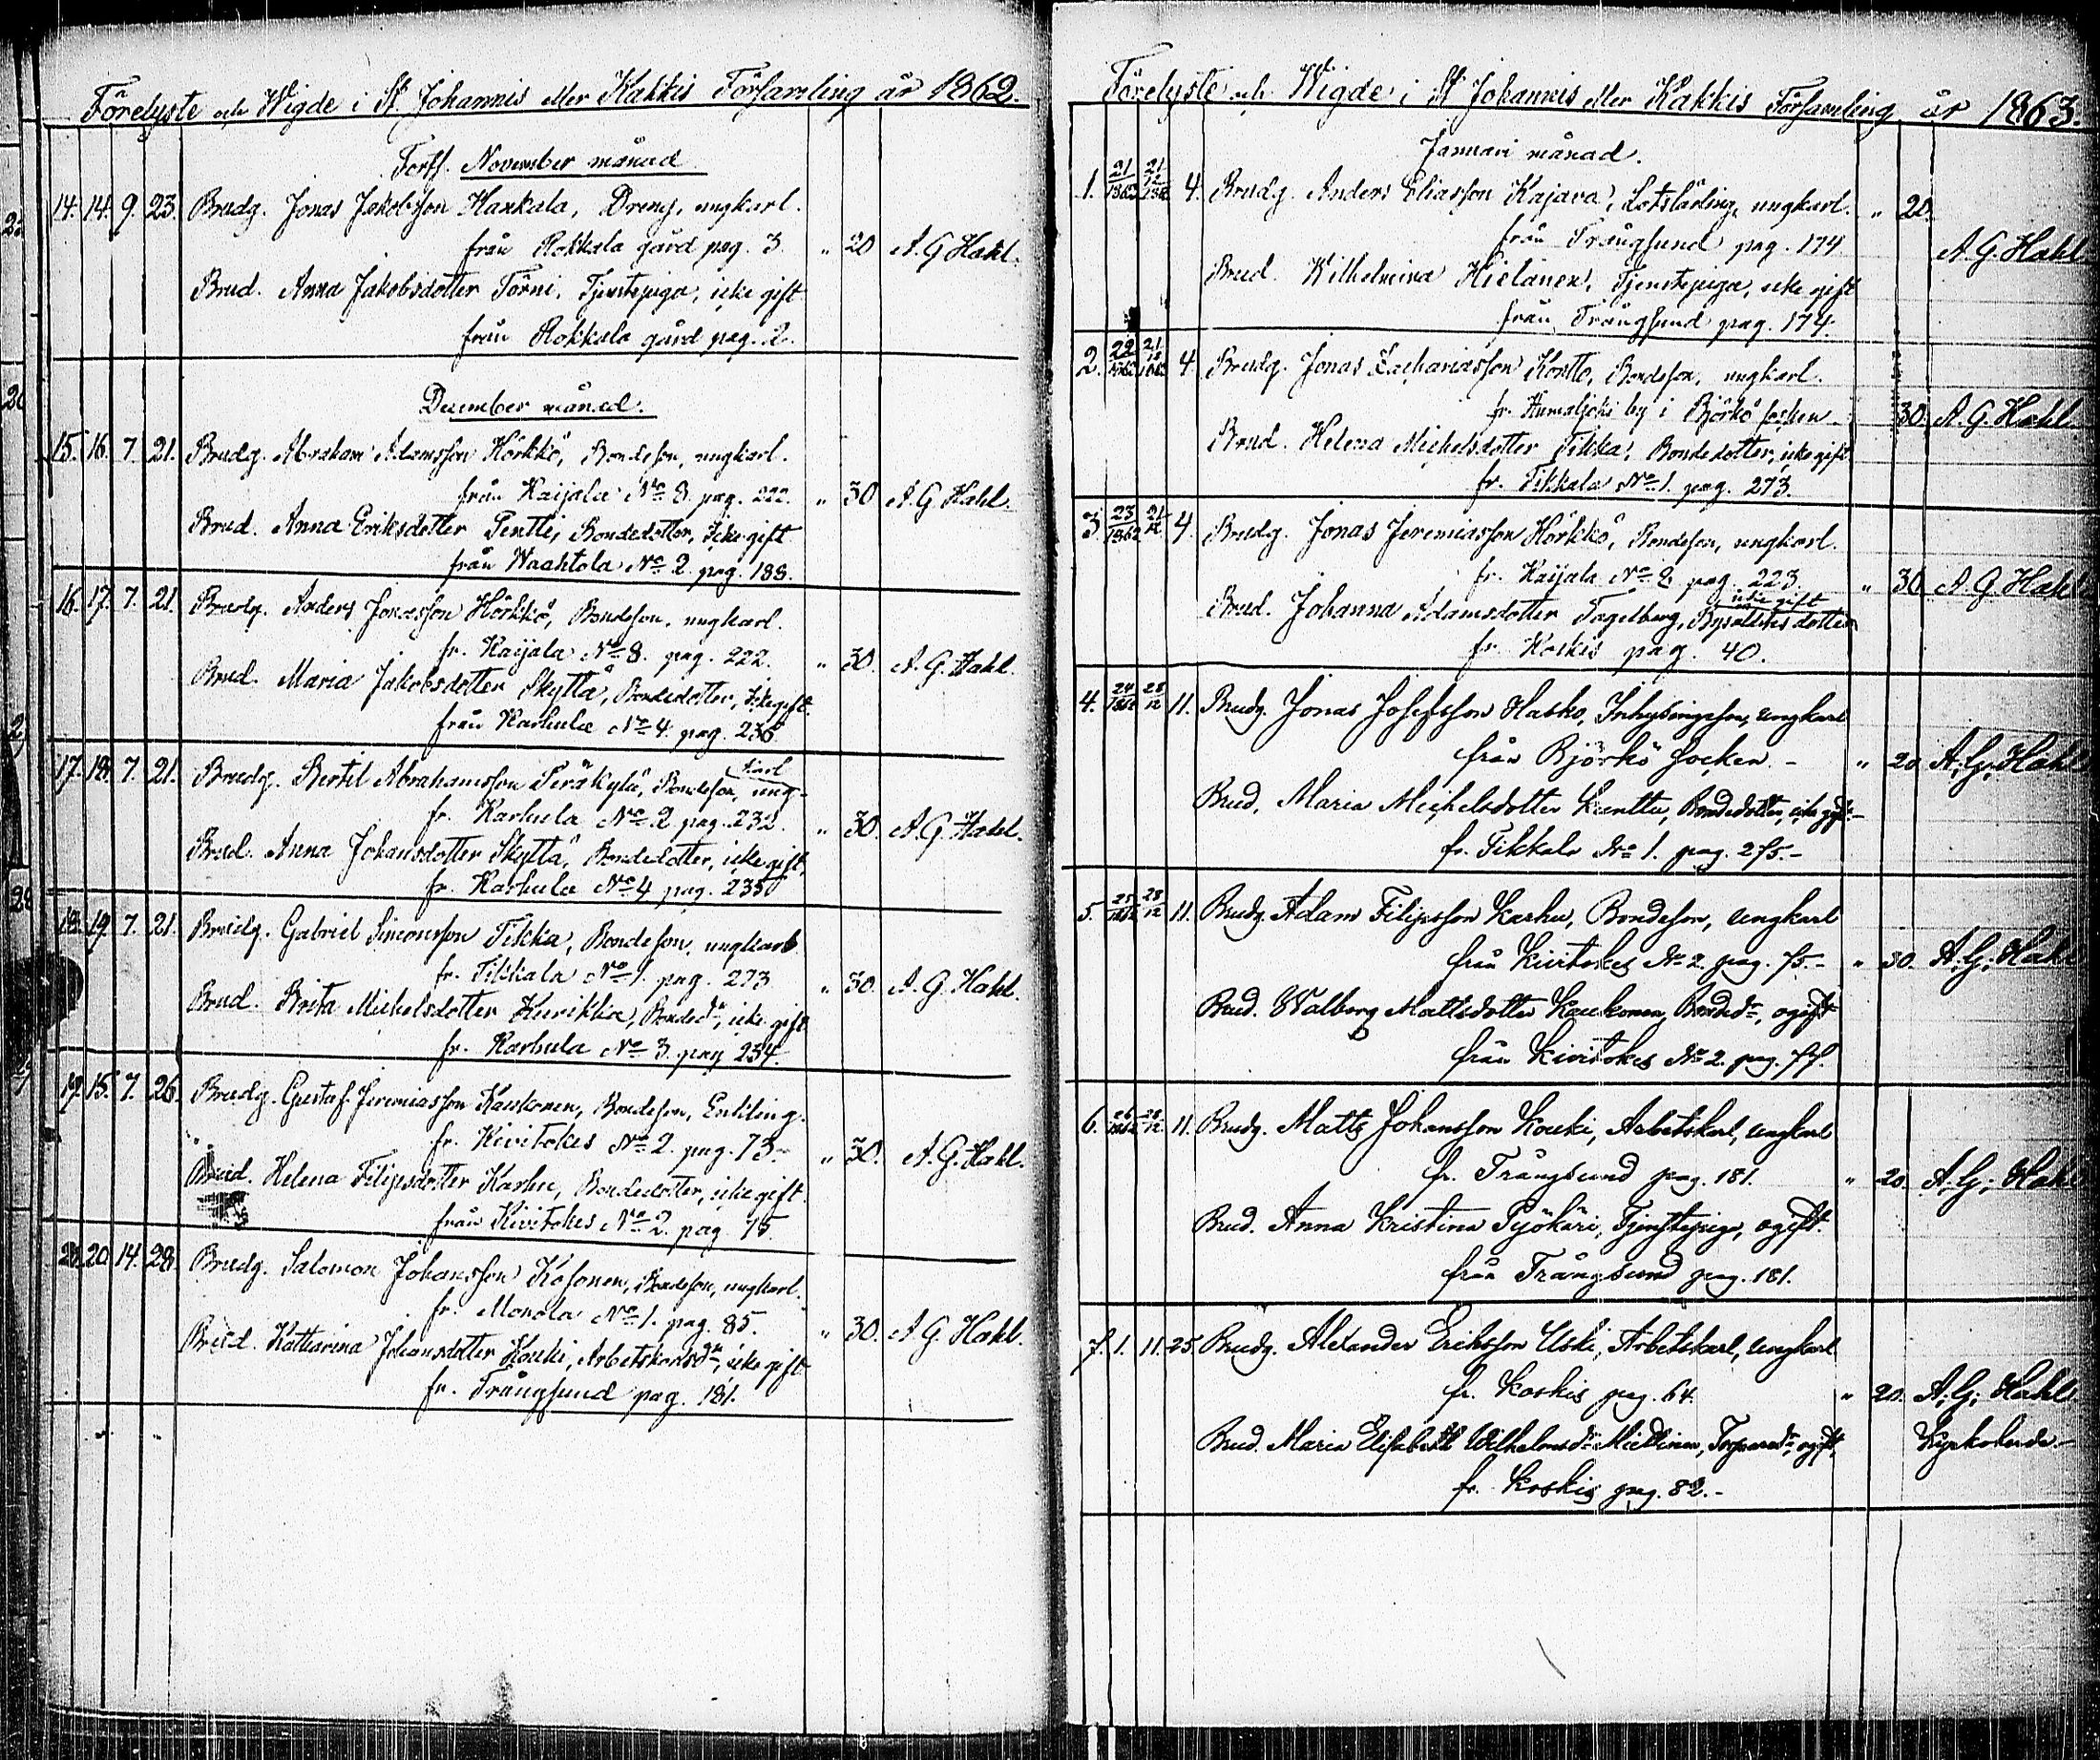 Förelyste och Wigde i St Johannis eller Kakkis Församling år 1862.
Forts. November månad
14. 14. 9. 23. Brudg. Jonas Jakobsson Hankala, Dreng, ungkarl.
från Rokkala gård pag. 3. " 20 A. G. Hahl.
Brud. Anna Jakobsdotter Törni, Tjenstepiga, icke gift
från Rokkala gård pag. 2.
December månad.
15. 16. 7. 21. Brudg. Abraham Adamsson Hörkkö, Bondeson, ungkarl.
från Kaijala No 8. pag. 222. " 30 A. G. Hahl.
Brud. Anna Eriksdotter Pentti, Bondedotter, Icke gift
från Waahtola No 2. pag. 188.
16. 17. 7. 21. Brudg. Anders Jonasson Hörkkö, Bondeson, ungkarl.
fr. Kaijala No 8. pag. 222. " 30. A. G. Hahl.
Brud. Maria Jakobsdotter Skyttä, Bondedotter, Icke gift.
från Karhula No 4. pag. 236.
17. 18. 7. 21. Brudg. Bertil Abrahamsson Peräkylä, Bondeson, ung-karl
fr. Karhula No 2 pag. 232. " 30. A. G. Hahl.
Brud. Anna Johansdotter Skyttä, Bondedotter, icke gift,
fr. Karhula No 4 pag. 235
18. 19. 7. 21. Brudg. Gabriel Simonsson Tikka, Bondeson, ungkarl
fr. Tikkala No 1. pag. 273 " 30. A. G. Hahl.
Brud. Brita Michelsdotter Kurikka, Bondedr, icke gift
fr. Karhula No 3. pag 234.
19. 15. 7. 26. Brudg. Gustaf Jeremiasson Kaukonen, Bondeson, Enkling.
fr. Kivitokes No 2. pag. 73. " 30. A. G. Hahl.
Brud. Helena Filipsdotter Karhu, Bondedotter, icke gift.
från Kivitokes No 2. pag. 75.
20. 20. 14. 28. Brudg. Salomon Johansson Kosonen, Bondeson, ungkarl.
fr. Monola No 1. pag. 85. " 30. A. G. Hahl.
Brud. Katharina Johansdotter Kouki, Arbetskarlsdr, icke gift
fr. Trångsund pag. 181.
Förelyste och Wigde i St Johannis eller Kakkis Församling år 1863.
Januari månad.
1. 21/1862 21/12 1862 4. Brudg. Anders Eliasson Kajava, Lotslärling, ungkarl. " 20.
från Trångsund pag. 174. A. G. Hahl
Brud. Wilhelmina Hietanen, Tjenstepiga, icke gift
från Trångsund pag. 174.
2. 22/1862 21/12 1862 4. Brudg. Jonas Zachariasson Kontto, Bondeson, ungkarl.
fr. Humaljoki by i Björkö socken. 30. A. G. Hahl.
Brud. Helena Michelsdotter Tikka, Bondedotter, icke gift.
fr. Tikkala No 1. pag. 273.
3. 23/1862 21/12 4. Brudg. Jonas Jeremiasson Hörkkö, Bondeson, ungkarl.
fr. Kaijala No 8. pag. 223. " 30 A. G Hahl
icke gift
Brud. Johanna Adamsdotter Tagelberg, Bysättares dotter
fr. Koskis pag. 40.
4. 24/1862 28/12 11. Brudg. Jonas Josefsson Hasko, Inhysingsson, ungkarl
från Björkö socken. - " 20 A. G. Hahl
Brud. Maria Michelsdotter Kuntta, Bondedotter, icke gift. -
fr. Tikkala No 1. pag. 275. -
5. 25/1862 28/12 11. Brudg. Adam Filipsson Karhu, Bondeson, ungkarl
från Kivitokes No 2. pag. 75. - " 30. A. G. Hahl
Brud. Walborg Mattsdotter Kaukonen, Bondedr, ogift
från Kivitokes No 2. pag. 77.
6. 26/1862 28/12 11. Brudg. Matts Johansson Kouki, Arbetskarl, ungkarl
fr. Trångsund pag. 181. " 20. A. G. Hahl
Brud. Anna Kristina Pyökäri, Tjenstepiga, ogift.
från Trångsund pag. 181.
7. 1. 11. 25. Brudg. Alexander Eriksson Uski, Arbetskarl, ungkarl
fr. Koskis pag. 64. " 20. A. G. Hahl
Brud. Maria Elisabeth Wilhelmsdr Miettinen, Torparedr, ogift. Kyrkoherde. -
fr. Koskis pag. 82. -